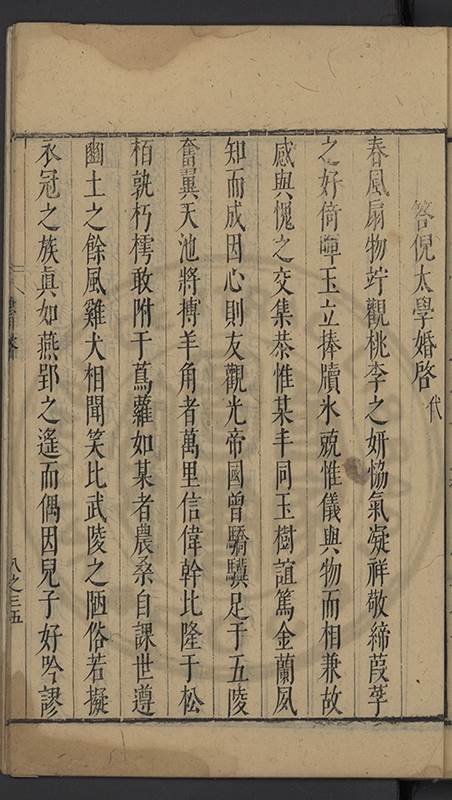 答倪太學婚啓代
春風扇物竚觀桃李之妍恊氣凝祥敬締葭莩
之好倚暉玉立捧牘氷兢惟儀與物而相兼故
感與愧之交集恭惟某丰同玉樹誼篤金蘭夙
知而成因心則友觀光帝國曾驕驥足于五陵
奮翼天池將搏羊角者萬里信偉幹比隆于松
栢孰朽樗敢附于蔦蘿如某者農桑自課世遵
豳土之餘風雞犬相聞笑比武陵之陋俗若擬
衣冠之族眞如燕郢之遙而偶因兒子好吟謬
八之三五